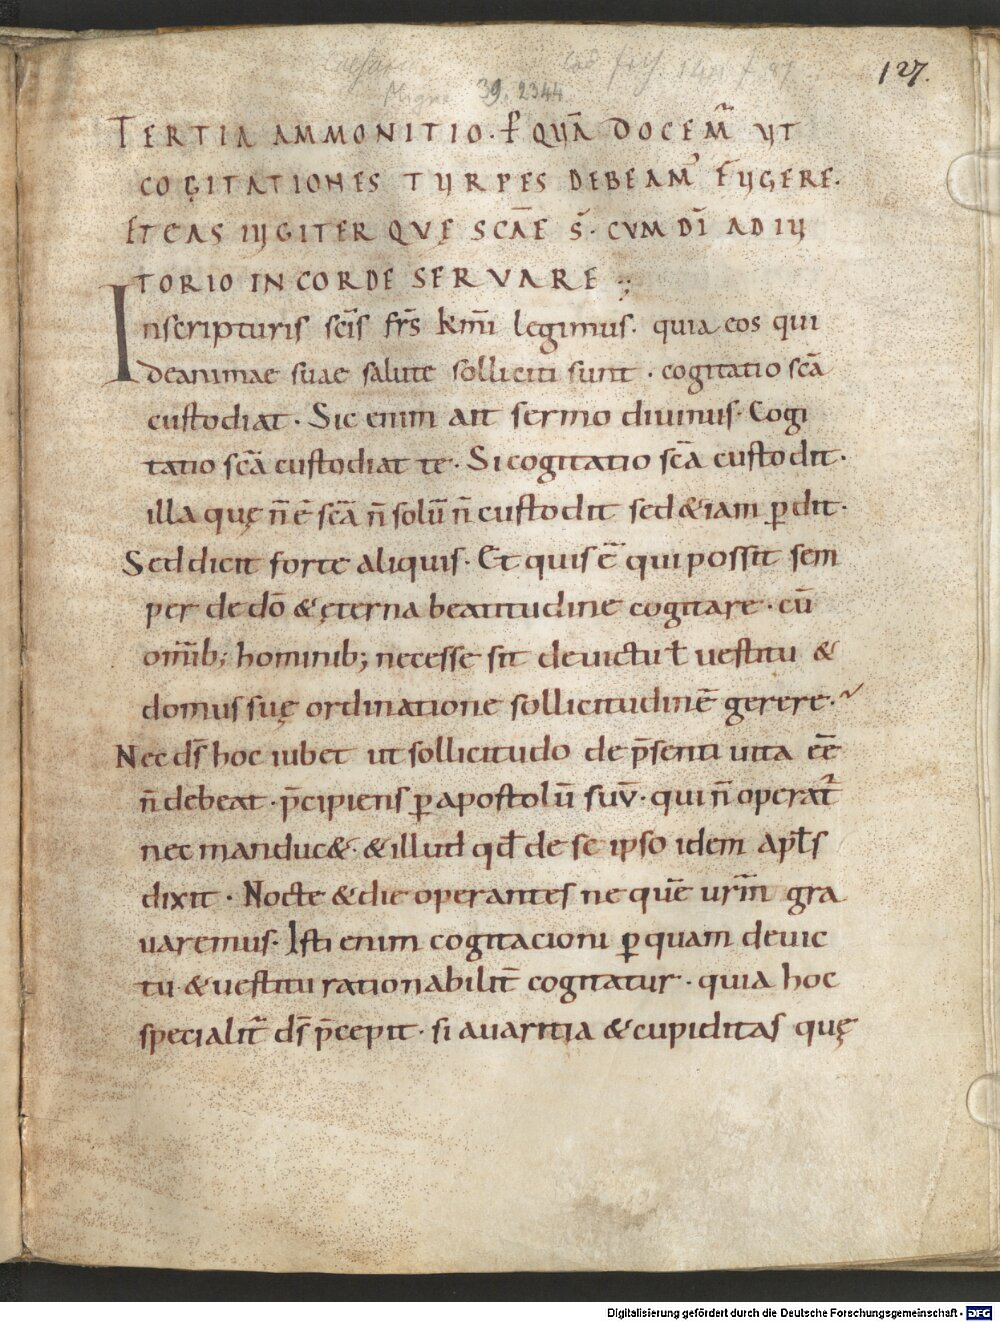 127.
Migne 39, 2344
TERTIA AMMONITIO · P̱ QUĀ DOCEM̄ VT
COGITATIONES TVRPES DEBEAM' FVGERE.
ET EAS IVGITER QVĘ SCĀE S̄. CVM DĪ ADIV
TORIO IN CORDE SERVARE ;
Inscripturis scīs frs̄ km̄i legimus. quia eos qui
deanimae suae salute solliciti sunt . cogitatio scā
custodiat . Sic enim ait sermo diuinus. Cogi
tatio scā custodiat te . Si cogitatio scā custodit.
illa quę n̄ ē scā n̄ solū n̄ custodit sed &iam ꝑdit.
Sed dicit forte aliquis. Et quis ē qui possit sem
per de dō & ęterna beatitudine cogitare . cū
om̄ib; hominib; necesse sit deuictu ł uestitu &
domus suę ordinatione sollicitudinē gerere.
Nec ds̄ hoc iubet ut sollicitudo de p̄senti uita eē
n̄ debeat . p̄cipiens ꝑ apostolū suū. qui n̄ operat̄
nec manduc&. & illud qd̄ de se ipso idem apl̄s
dixit . Nocte & die operantes ne quē ur̄m gra
uaremus. Isti enim cogitacioni ꝑ quam deuic
tu & uestitu rationabilit̄ cogitatur . quia hoc
specialit̄ ds̄ p̄cepit . si auaritia & cupiditas quę
Digitalisierung gefördert durch die Deutsche Forschungsgemeinschaft - DFG